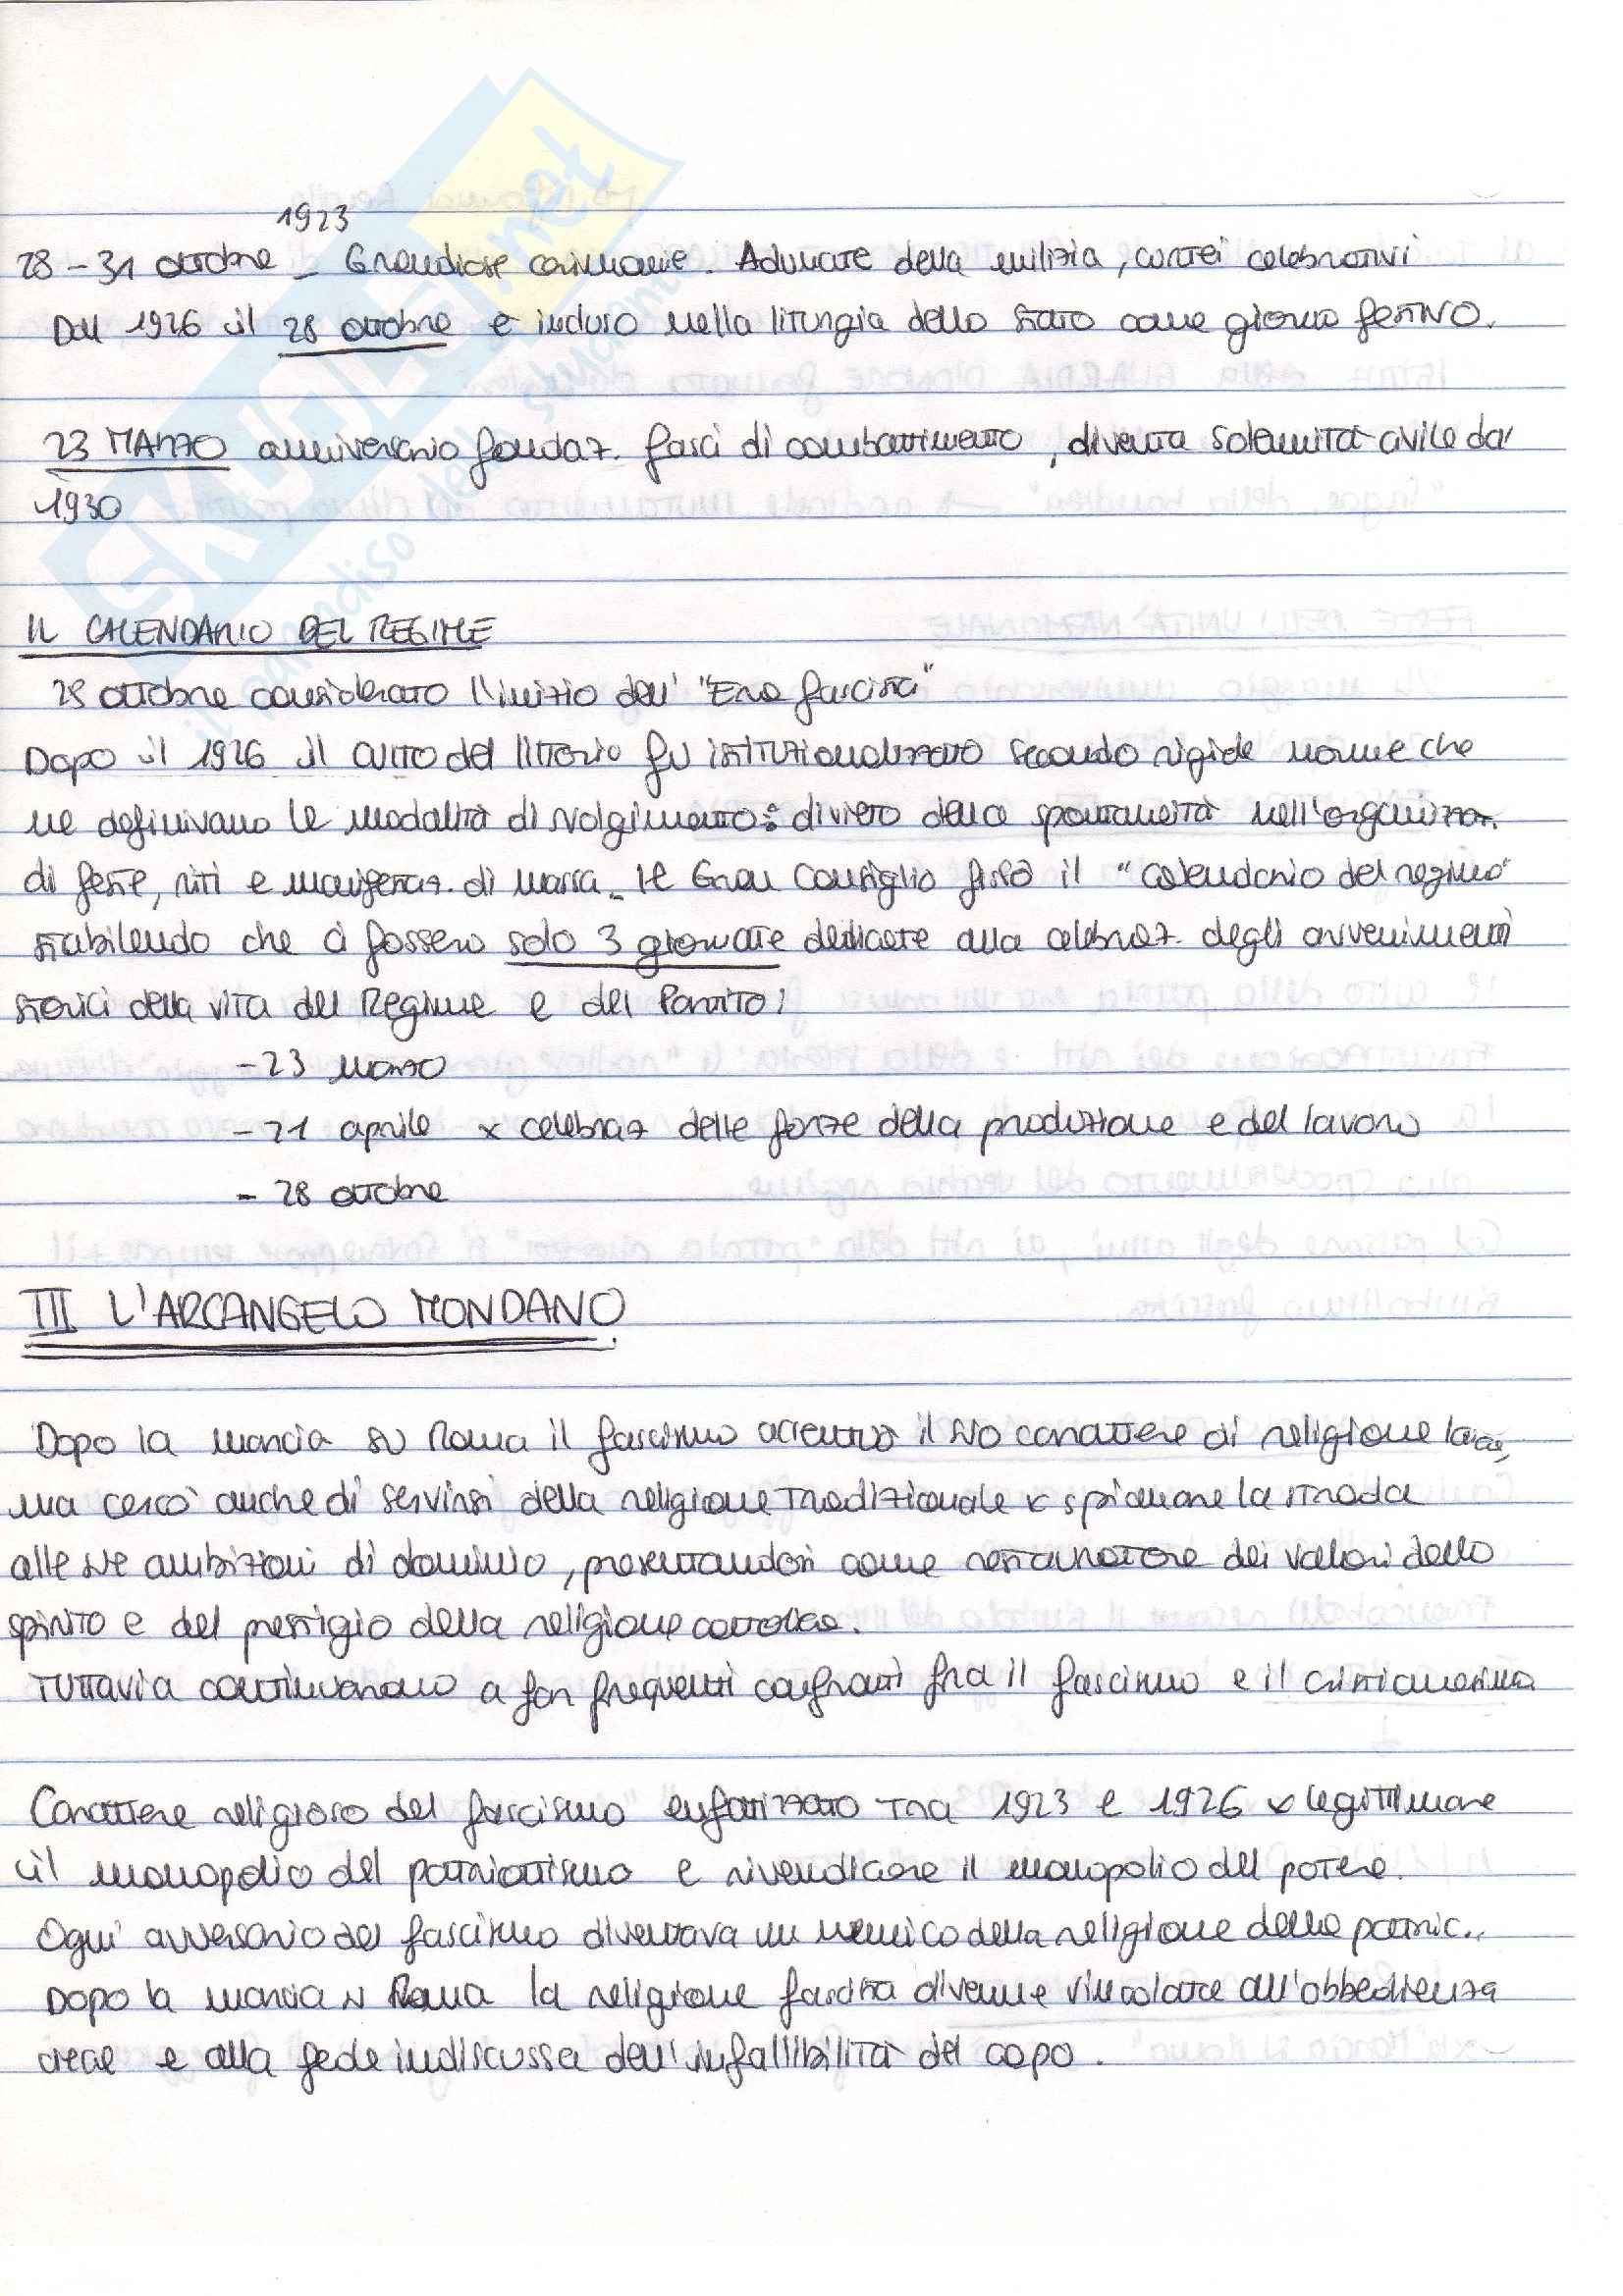 1923
28-31 ottobre - Grandiose cerimonie. Adunate della milizia, cortei celebrativi
Dal 1926 il 28 ottobre è incluso nella liturgia dello stato come giorno festivo.
23 MARZO anniversario fondaz. fasci di combattimento, diventa solennità civile dal
1930
IL CALENDARIO DEL REGIME
28 ottobre considerato l'inizio dell' "Era fascista"
Dopo il 1926 il culto del littorio fu istituzionalizzato secondo rigide norme che
ne definivano le modalità di svolgimento: divieto della spontaneità nell'organizzaz.
di feste, riti e manifestaz. di massa. Il Gran Consiglio fissò il "calendario del regime"
stabilendo che ci fossero solo 3 giornate dedicate alla celebraz. degli avvenimenti
storici della vita del Regime e del Partito:
- 23 marzo
- 21 aprile x celebraz delle forze della produzione e del lavoro
- 28 ottobre
III L'ARCANGELO MONDANO
Dopo la marcia su Roma il fascismo accentuò il suo carattere di religione laica,
ma cercò anche di servirsi della religione tradizionale x spianare la strada
alle sue ambizioni di dominio, presentandosi come restauratore dei valori dello
spirito e del prestigio della religione cattolica.
Tuttavia continuarono a far frequenti confronti fra il fascismo e il cristianesimo
Carattere religioso del fascismo enfatizzato tra 1923 e 1926 x legittimare
il monopolio del patriottismo e rivendicare il monopolio del potere.
Ogni avversario del fascismo diventava un nemico della religione della patria.
Dopo la marcia su Roma la religione fascista divenne vincolata all'obbedienza
cieca e alla fede indiscussa dell'infallibilità del capo.
SKUOLA.net
il paradiso dello studente